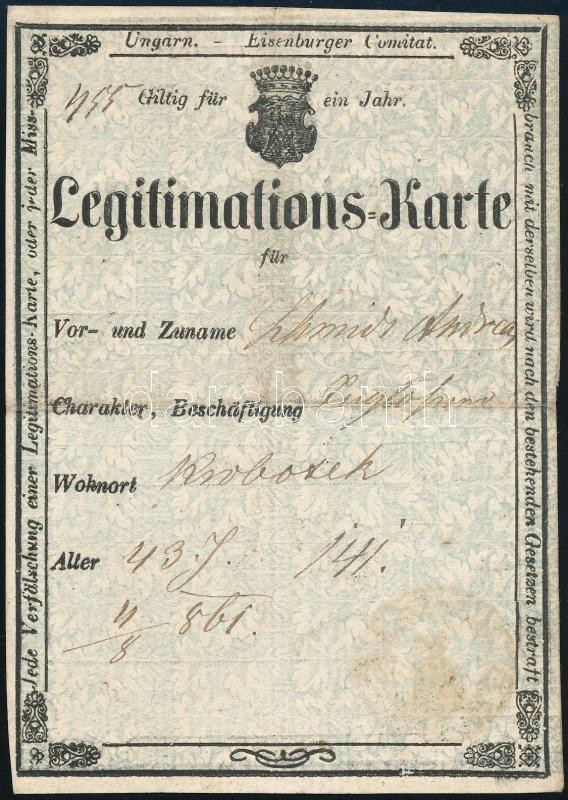 Ungarn. - Eisenburger Comitat.
455 Giltig für ein Jahr.
Legitimations=Karte
für
Vor- und Zuname Schmidt Andreas
Charakter, Beschäftigung
Wohnort Krobotek
Alter 43 J. 141.
11/8 861.
Jede Verfälschung einer Legitimations-Karte, oder jeder Miss-
brauch mit derselben wird nach den bestehenden Gesetzen bestraft
darabanth